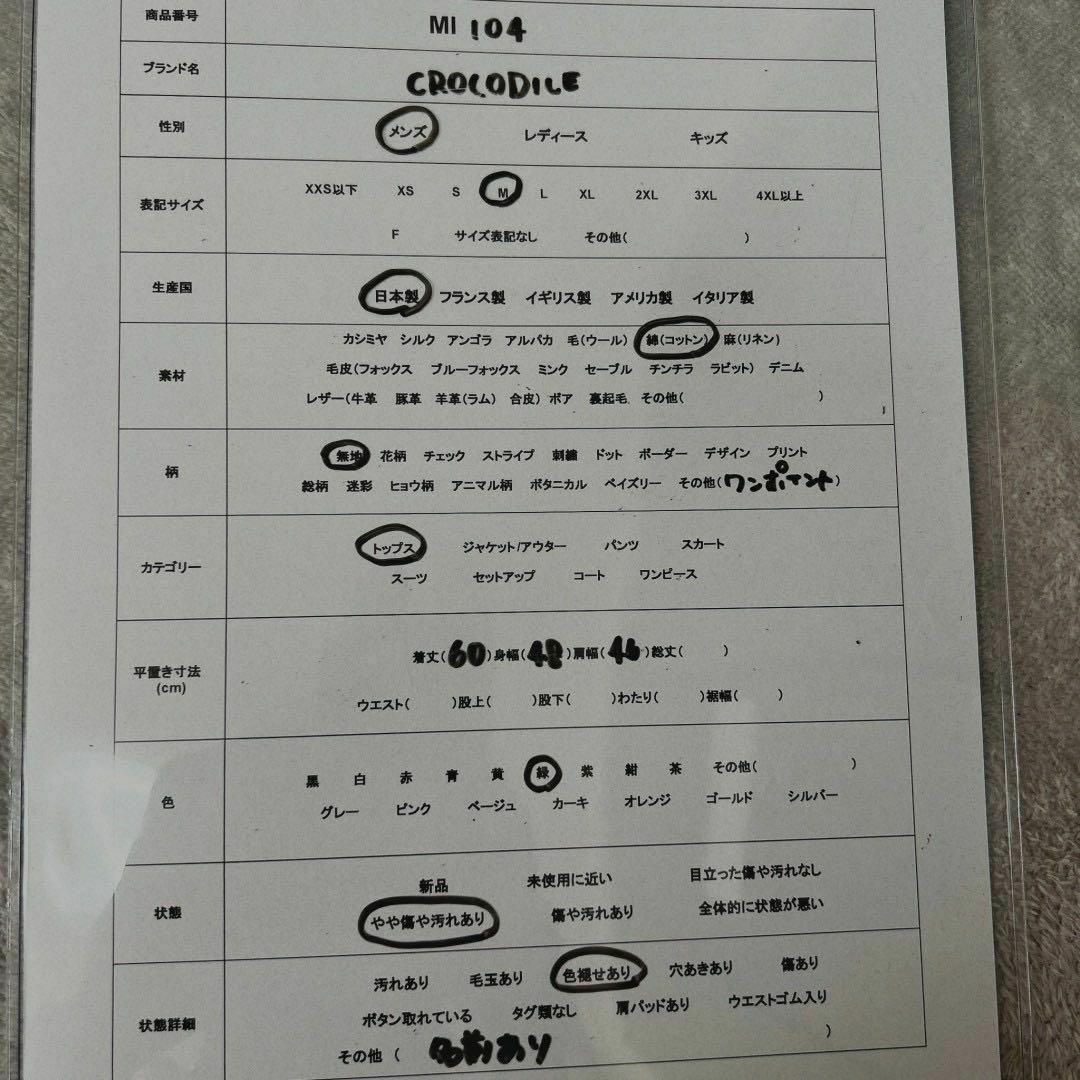 商品番号 MI 104
ブランド名 CROCODILE
性別 メンズ レディース キッズ
表記サイズ XXS以下 XS S M L XL 2XL 3XL 4XL以上
F サイズ表記なし その他( )
生産国 日本製 フランス製 イギリス製 アメリカ製 イタリア製
素材 カシミヤ シルク アンゴラ アルパカ 毛(ウール) 綿(コットン) 麻(リネン)
毛皮(フォックス ブルーフォックス ミンク セーブル チンチラ ラビット) デニム
レザー(牛革 豚革 羊革(ラム) 合皮) ボア 裏起毛 その他( )
柄 無地 花柄 チェック ストライプ 刺繍 ドット ボーダー デザイン プリント
総柄 迷彩 ヒョウ柄 アニマル柄 ボタニカル ペイズリー その他(ワンポイント)
カテゴリー トップス ジャケット/アウター パンツ スカート
スーツ セットアップ コート ワンピース
平置き寸法 着丈(60)身幅(48)肩幅(46)総丈( )
(cm) ウエスト( )股上( )股下( )わたり( )裾幅( )
色 黒 白 赤 青 黄 緑 紫 紺 茶 その他( )
グレー ピンク ベージュ カーキ オレンジ ゴールド シルバー
状態 新品 未使用に近い 目立った傷や汚れなし
やや傷や汚れあり 傷や汚れあり 全体的に状態が悪い
状態詳細 汚れあり 毛玉あり 色褪せあり 穴あきあり 傷あり
ボタン取れている タグ類なし 肩パッドあり ウエストゴム入り
その他 ( 名前あり )